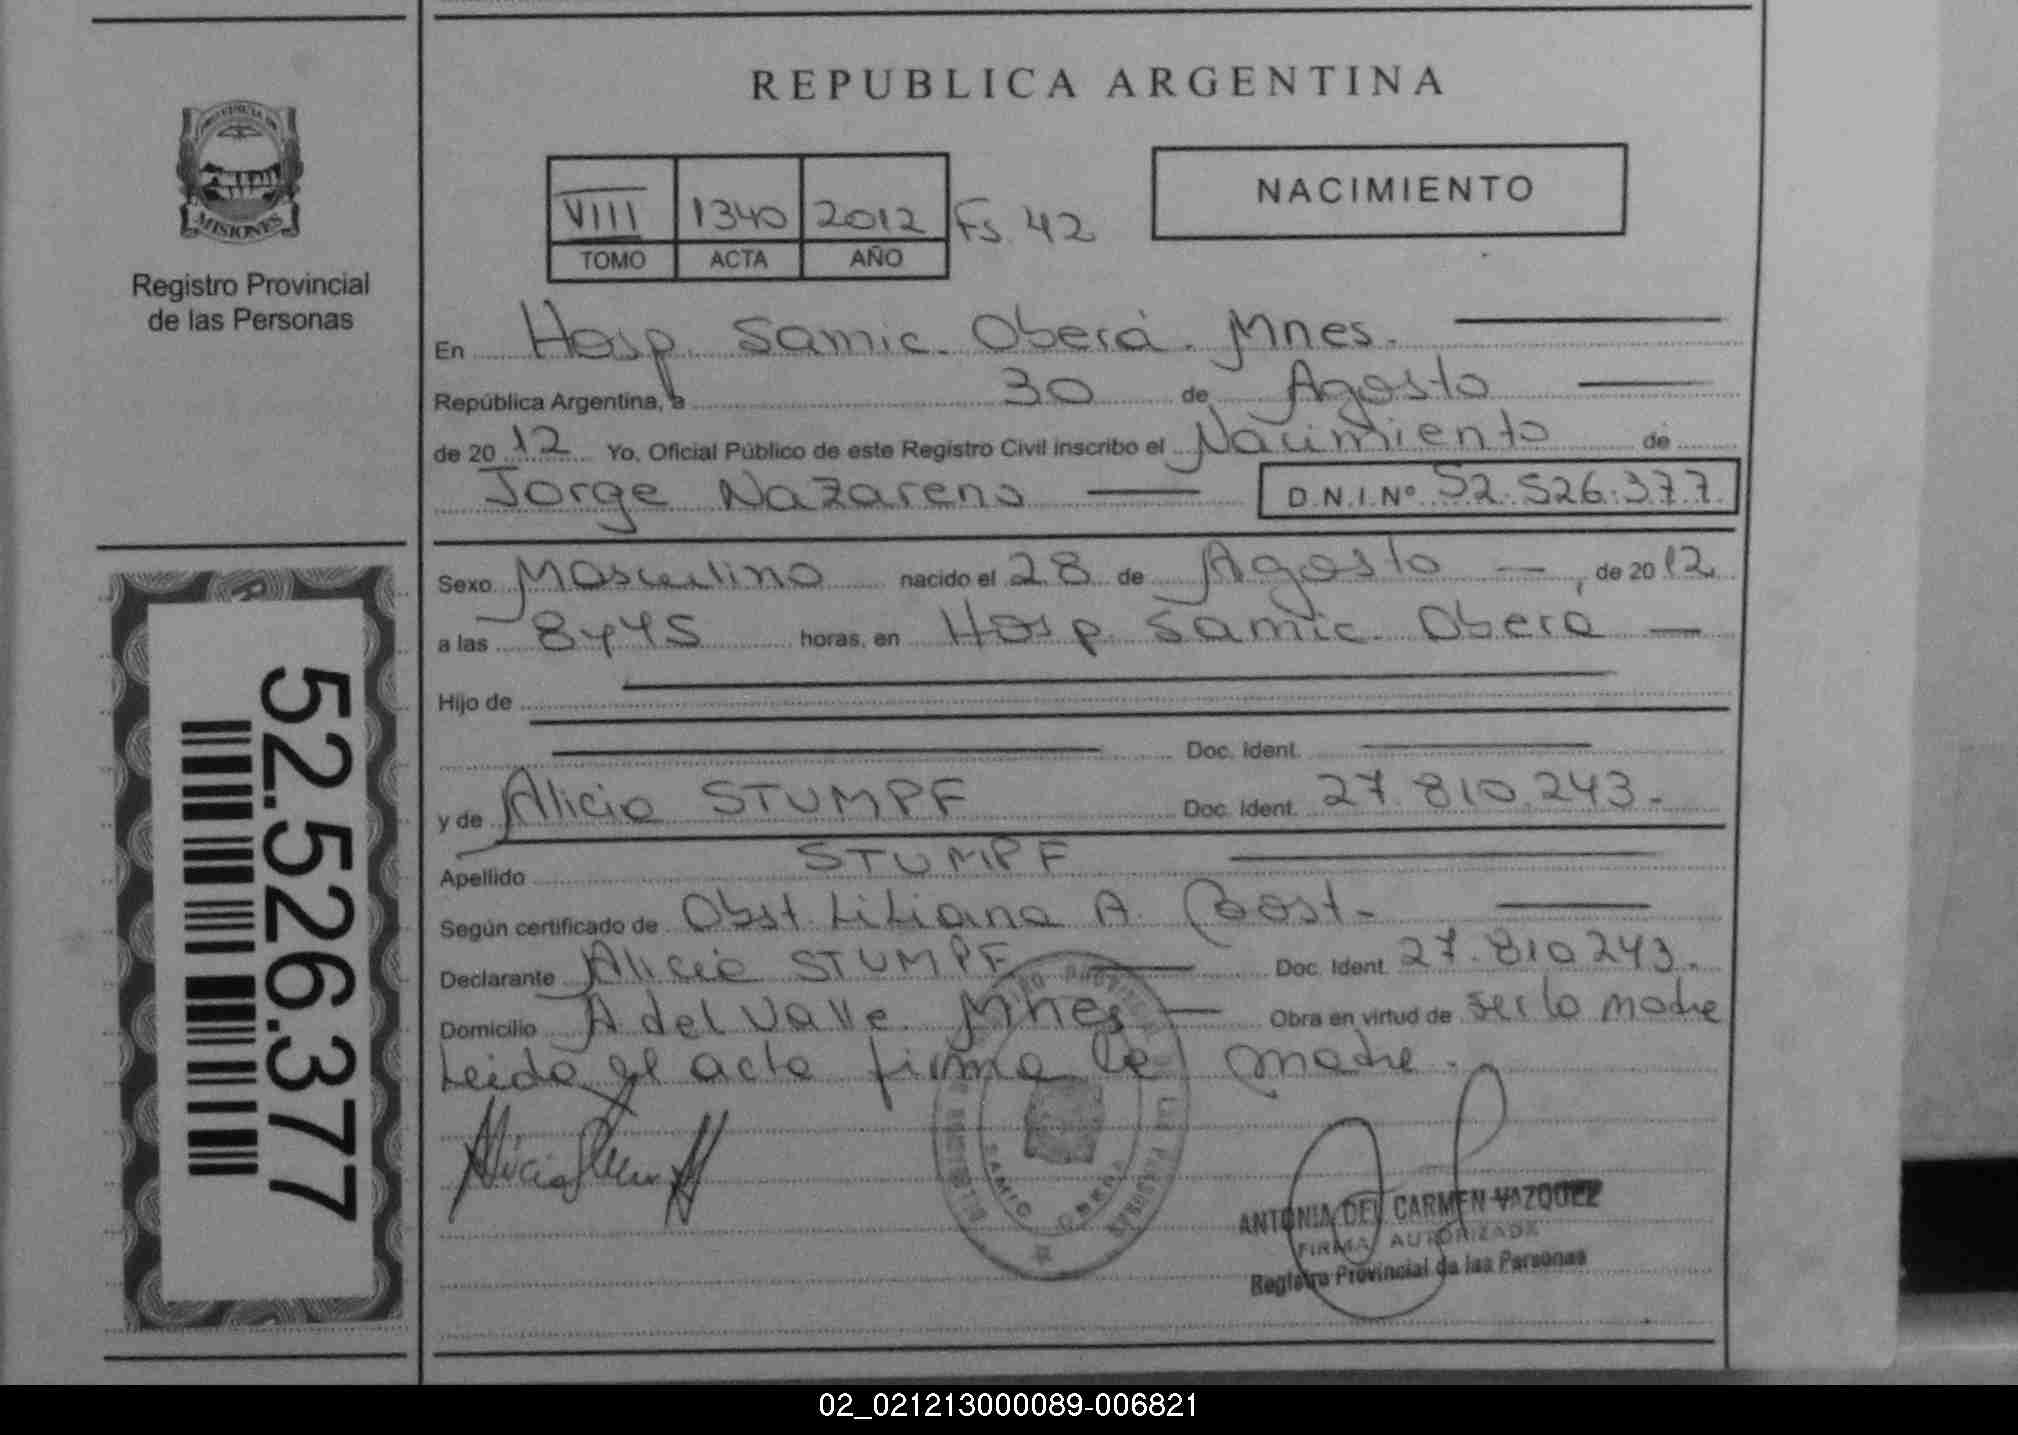 REPUBLICA ARGENTINA
PROVINCIA DE
MISIONES
Registro Provincial
de las Personas
NACIMIENTO
VIII 1340 2012 Fs. 42
TOMO ACTA AÑO
En Hosp. Samic. Oberá. Mnes.
República Argentina, a 30 de Agosto
de 2012 Yo, Oficial Público de este Registro Civil inscribo el Nacimiento de
Jorge Nazareno D.N.I.Nº 52.526.377
Sexo Masculino nacido el 28 de Agosto, de 2012
a las 8y45 horas, en Hosp. Samic. Oberá
Hijo de
Doc. Ident.
y de Alicia STUMPF Doc. Ident. 27.810.243.
Apellido STUMPF
Según certificado de Obst. Liliana A. Bost.
Declarante Alicia STUMPF Doc. Ident. 27.810.243.
Domicilio A del Valle Mnes Obra en virtud de ser la madre
Leida el acta firma la madre.
SAMIC OBERA
ANTONIA DEL CARMEN VAZQUEZ
FIRMA AUTORIZADA
Registro Provincial de las Personas
52.526.377
02_021213000089-006821